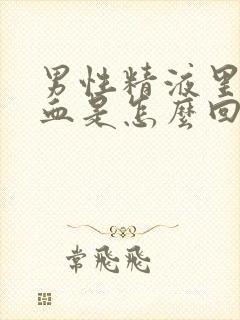 男性精液里
血是怎麼回
常飛飛